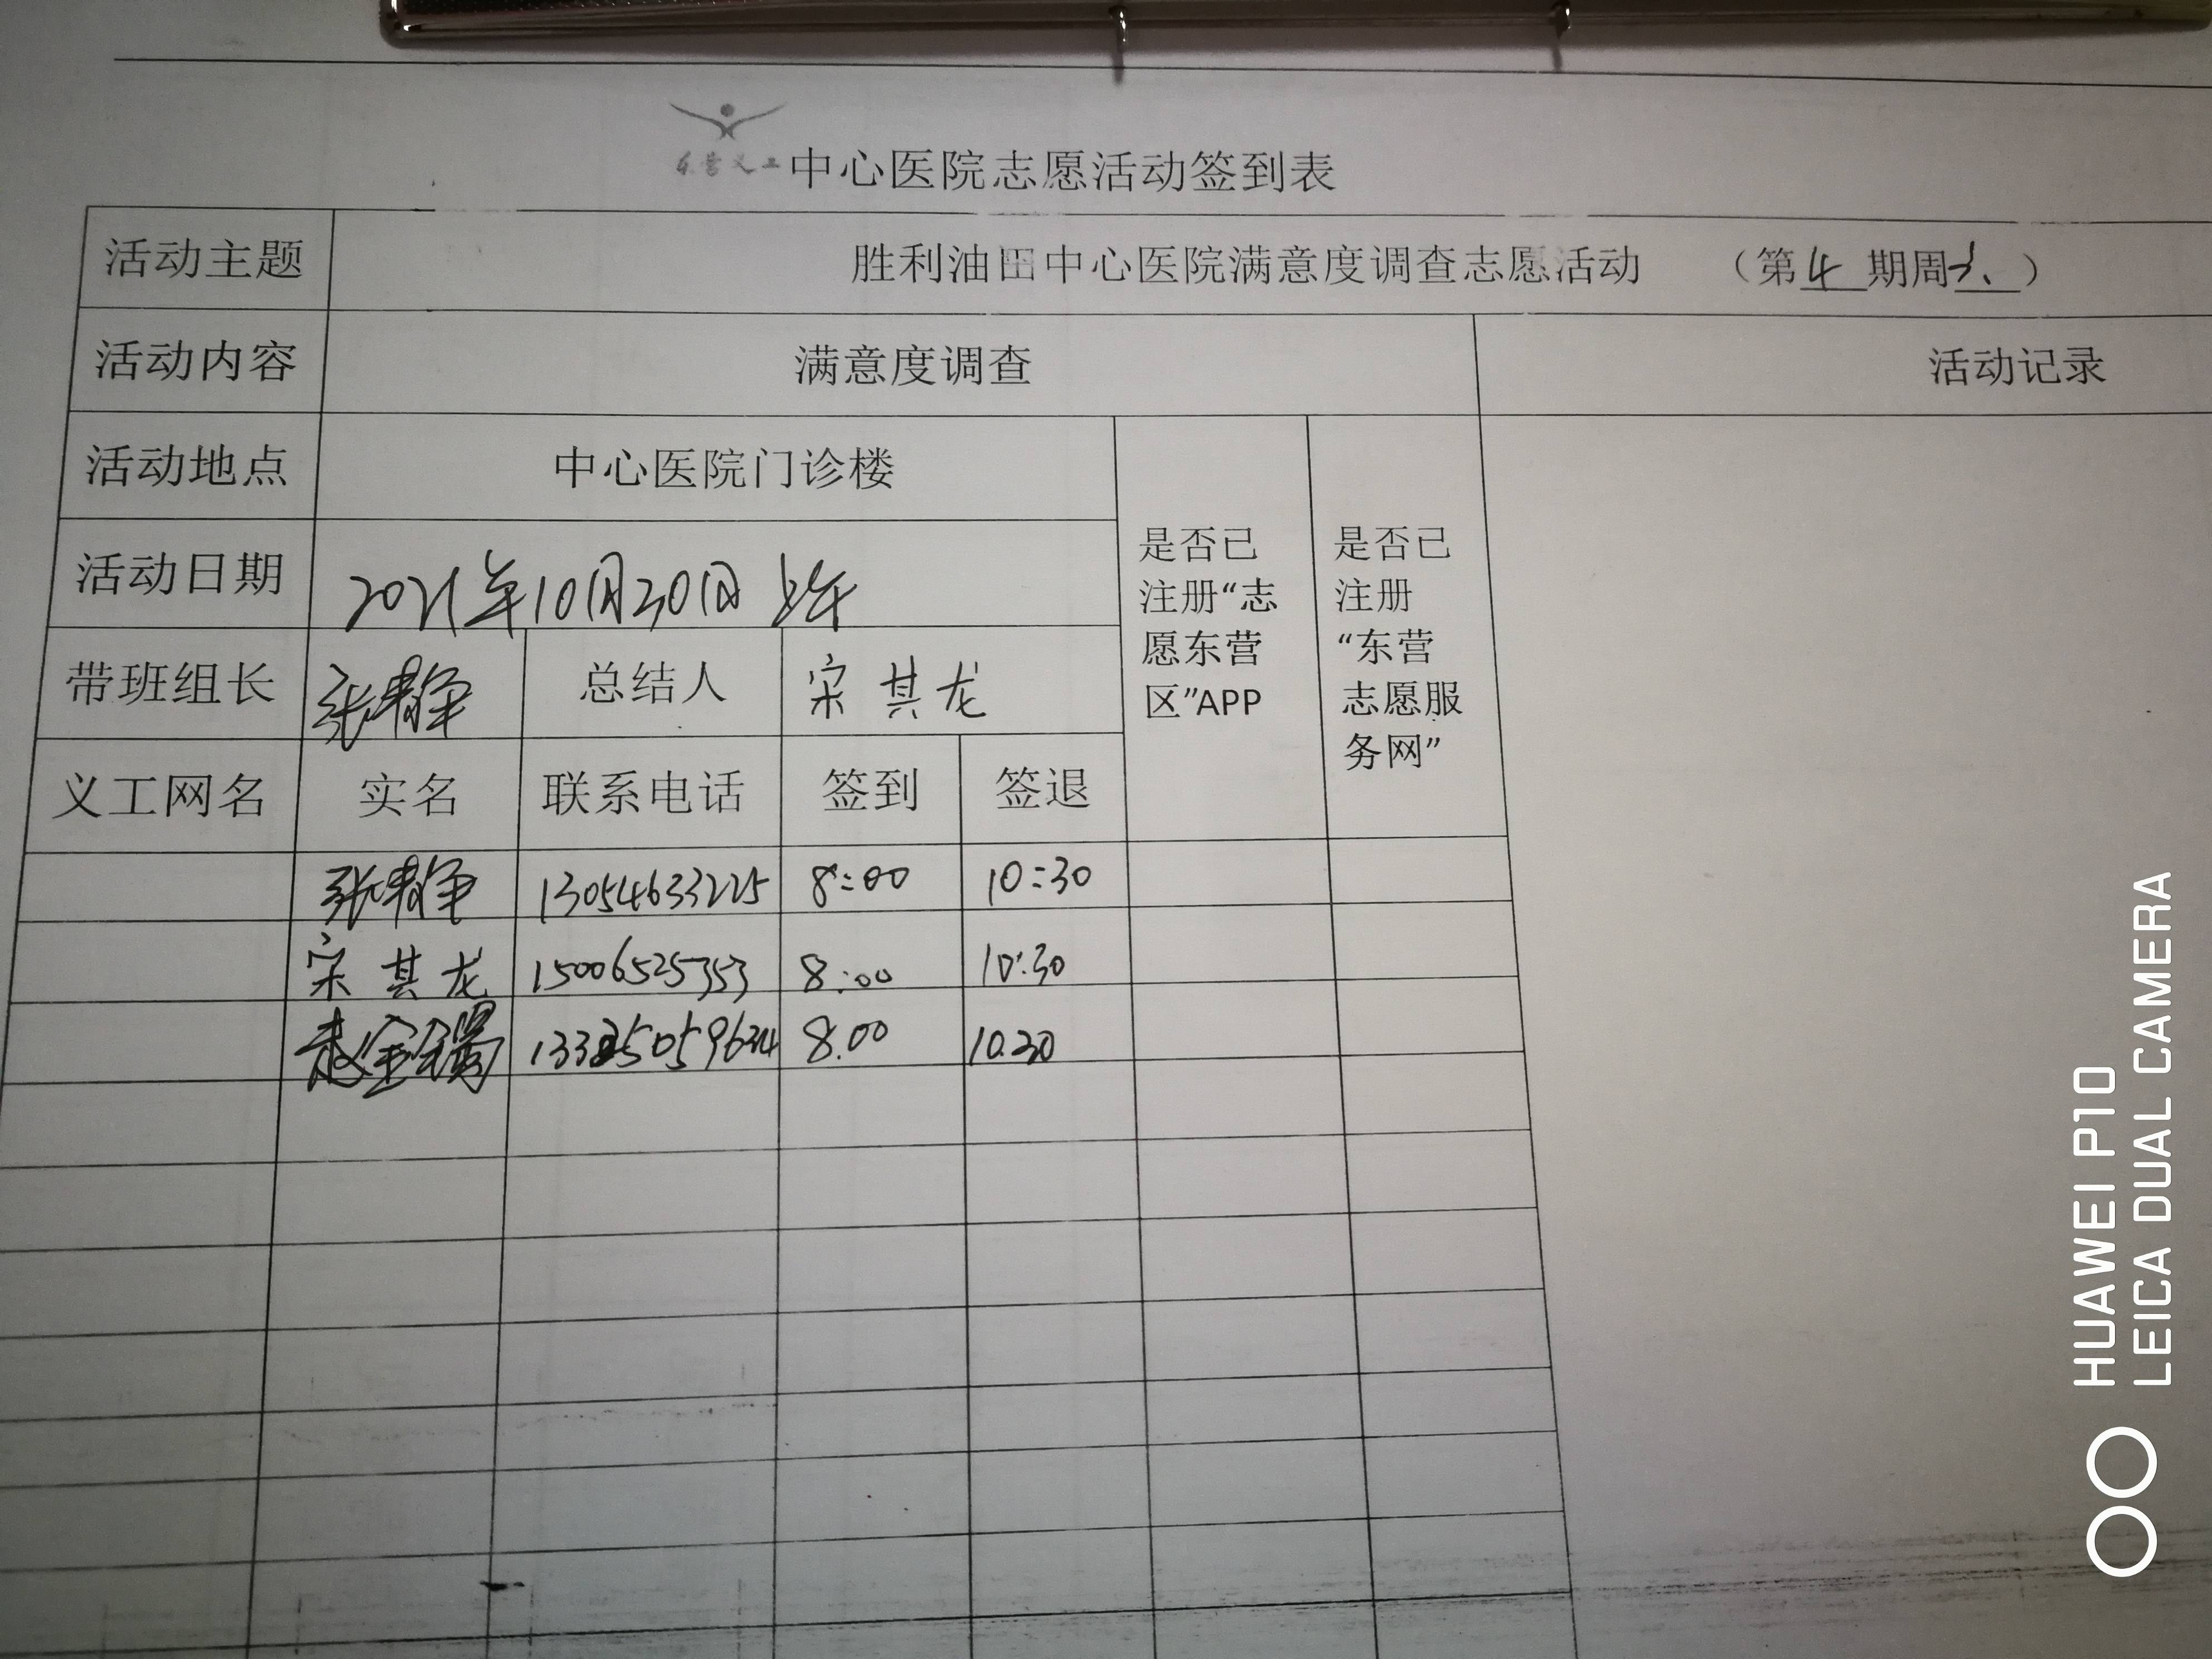 东营义工 中心医院志愿活动签到表
活动主题 胜利油田中心医院满意度调查志愿活动 （第4期周六）
活动内容 满意度调查 活动记录
活动地点 中心医院门诊楼
是否已注册“志愿东营区”APP
是否已注册“东营志愿服务网”
活动日期 2021年10月30日 上午
带班组长 张静 总结人 宋其龙
义工网名 实名 联系电话 签到 签退
张静 13054633225 8:00 10:30
宋其龙 15006525353 8:00 10:30
8.00 10.30
HUAWEI P10
LEICA DUAL CAMERA